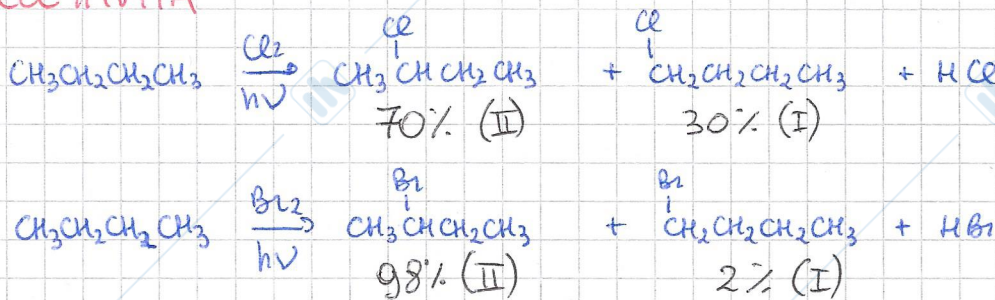 CH3CH2CH2CH3 Cl2 hν CH3CHCH2CH3 Cl + CH2CH2CH2CH3 Cl + HCl
70% (II) 30% (I)
CH3CH2CH2CH3 Br2 hν CH3CHCH2CH3 Br + CH2CH2CH2CH3 Br + HBr
98% (II) 2% (I)